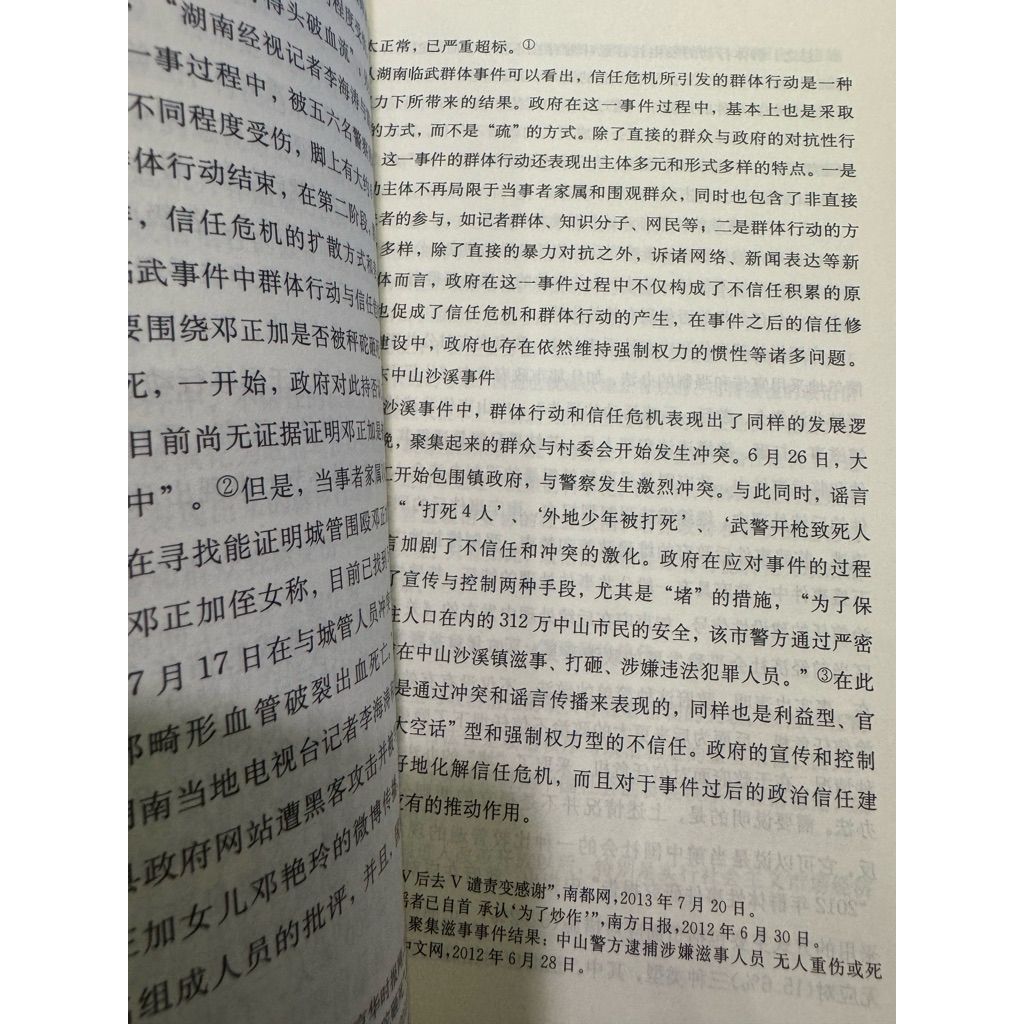 程度受
得头破血流”
“湖南经视记者李海涛
一事过程中，被五六名警察
不同程度受伤，脚上有大约
群体行动结束，在第二阶段
，信任危机的扩散方式和
临武事件中群体行动与信任危
要围绕邓正加是否被秤砣砸
死，一开始，政府对此持否
目前尚无证据证明邓正加是
中”。②但是，当事者家属
在寻找能证明城管围殴邓正
邓正加侄女称，目前已找到
7月17日在与城管人员冲突
部畸形血管破裂出血死亡
湖南当地电视台记者李海涛
县政府网站遭黑客攻击并被
正加女儿邓艳玲的微博传播
组成人员的批评，并且，
太正常，已严重超标。①
从湖南临武群体事件可以看出，信任危机所引发的群体行动是一种
力下所带来的结果。政府在这一事件过程中，基本上也是采取
的方式，而不是“疏”的方式。除了直接的群众与政府的对抗性行
，这一事件的群体行动还表现出主体多元和形式多样的特点。一是
动主体不再局限于当事者家属和围观群众，同时也包含了非直接
者的参与，如记者群体、知识分子、网民等；二是群体行动的方
多样，除了直接的暴力对抗之外，诉诸网络、新闻表达等新
体而言，政府在这一事件过程中不仅构成了不信任积累的原
也促成了信任危机和群体行动的产生，在事件之后的信任修
建设中，政府也存在依然维持强制权力的惯性等诸多问题。
东中山沙溪事件
沙溪事件中，群体行动和信任危机表现出了同样的发展逻
晚，聚集起来的群众与村委会开始发生冲突。6月26日，大
工开始包围镇政府，与警察发生激烈冲突。与此同时，谣言
“‘打死4人’、‘外地少年被打死’、‘武警开枪致死人
言加剧了不信任和冲突的激化。政府在应对事件的过程
了宣传与控制两种手段，尤其是“堵”的措施，“为了保
住人口在内的312万中山市民的安全，该市警方通过严密
在中山沙溪镇滋事、打砸、涉嫌违法犯罪人员。”③在此
是通过冲突和谣言传播来表现的，同样也是利益型、官
大空话”型和强制权力型的不信任。政府的宣传和控制
好地化解信任危机，而且对于事件过后的政治信任建
应有的推动作用。
V后去V谴责变感谢”，南都网，2013年7月20日。
谣者已自首 承认‘为了炒作’”，南方日报，2012年6月30日。
聚集滋事事件结果：中山警方逮捕涉嫌滋事人员 无人重伤或死
中文网，2012年6月28日。